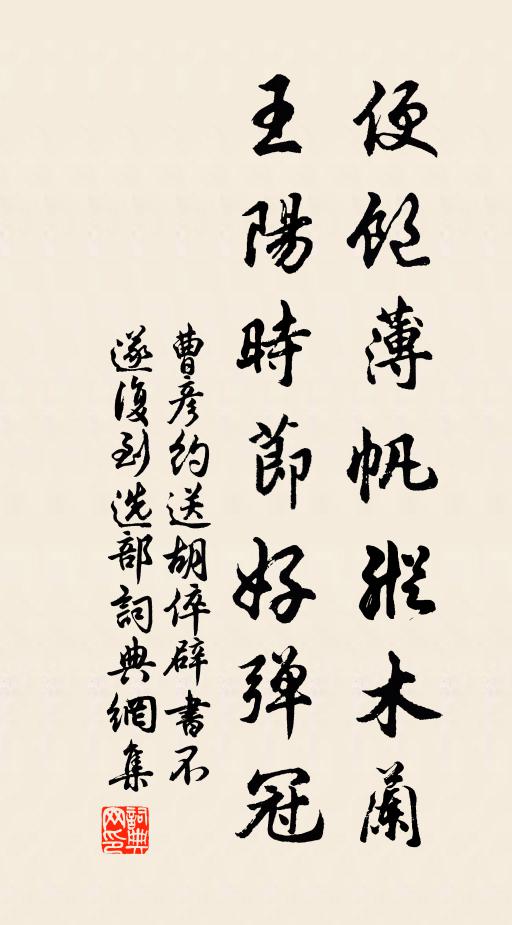 便飽薄帆縱木蘭
王陽時節好弹冠
曹彦約送胡倅辟書不
遂復到选部詞典網集
詞典
网印